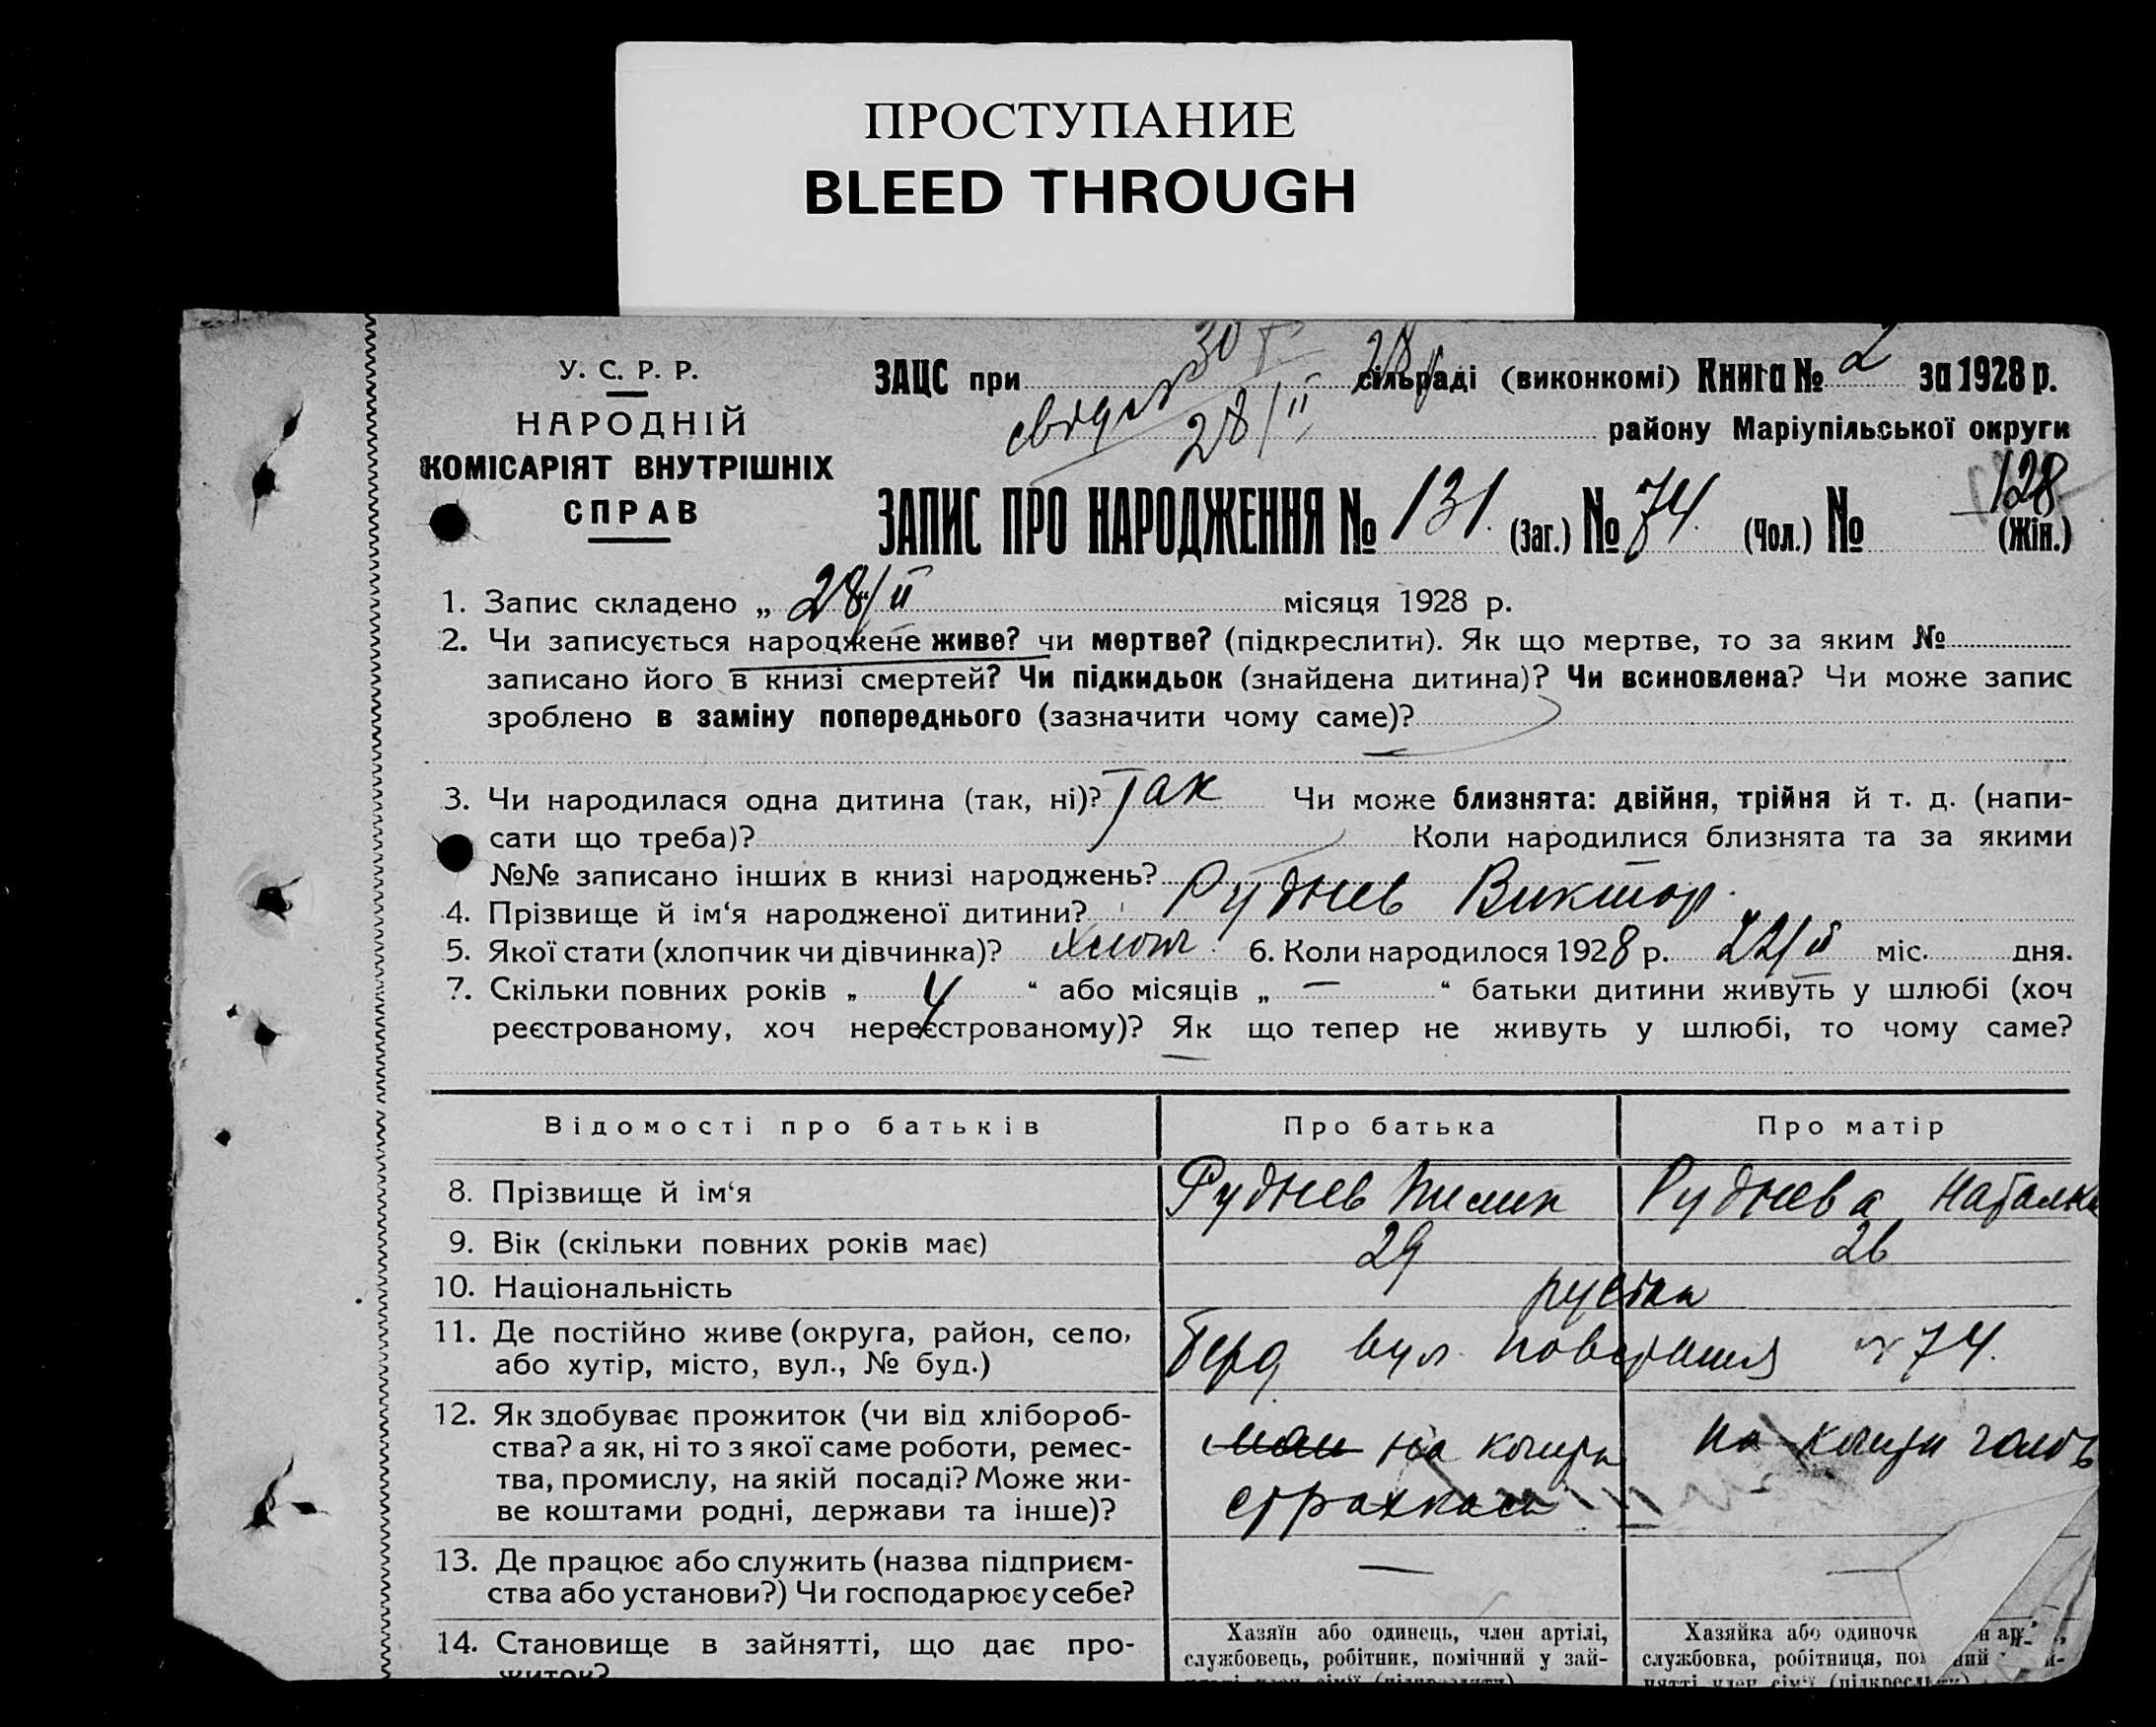 ПРОСТУПАНИЕ
BLEED THROUGH
У. С. Р. Р.
НАРОДНІЙ
КОМІСАРІЯТ ВНУТРІШНІХ
СПРАВ
30 28
ЗАЦС при сільраді (виконкомі) Книга № 2 за 1928 р.
28/II району Маріупільської округи
128
ЗАПИС ПРО НАРОДЖЕННЯ № 131. (Заг.) № 74. (Чол.) № (Жін.)
1. Запис складено „ 28/II місяця 1928 р.
2. Чи записується народжене живе? чи мертве? (підкреслити). Як що мертве, то за яким №
записано його в книзі смертей? Чи підкидьок (знайдена дитина)? Чи всиновлена? Чи може запис
зроблено в заміну попереднього (зазначити чому саме)?
3. Чи народилася одна дитина (так, ні)? Так Чи може близнята: двійня, трійня й т. д. (напи-
сати що треба)? Коли народилися близнята та за якими
№№ записано інших в книзі народжень?
4. Прізвище й ім‘я народженої дитини? Руднев Виктор.
5. Якої стати (хлопчик чи дівчинка)? хлоп. 6. Коли народилося 1928 р. 22/II міс. дня.
7. Скільки повних років „ 4 “ або місяців „ — “ батьки дитини живуть у шлюбі (хоч
реєстрованому, хоч нереєстрованому)? Як що тепер не живуть у шлюбі, то чому саме?
—
Відомості про батьків Про батька Про матір
8. Прізвище й ім‘я Руднев Руднева Наталка
9. Вік (скільки повних років має) 29 26
10. Національність
11. Де постійно живе (округа, район, село,
або хутір, місто, вул., № буд.) Берд вул. № 74.
12. Як здобуває прожиток (чи від хлібороб-
ства? а як, ні то з якої саме роботи, ремес-
тва, промислу, на якій посаді? Може жи-
ве коштами родні, держави та інше)?
на кошти на кошти
страхкаси
13. Де працює або служить (назва підприєм-
ства або установи?) Чи господарює у себе? — —
14. Становище в зайнятті, що дає про-
житок?
Хазяїн або одинець, член артілі,
службовець, робітник, помічний у зай-
Хазяйка або одиночк
службовка, робітниця,